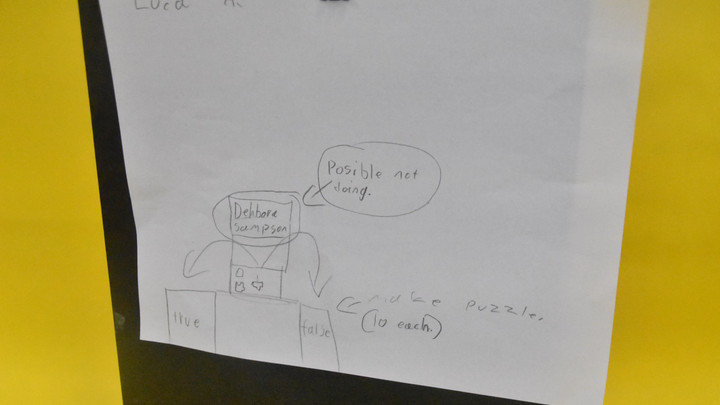 Posible not
doing.
Dehbore
sampson
true
false
make puzzle.
(10 each.)